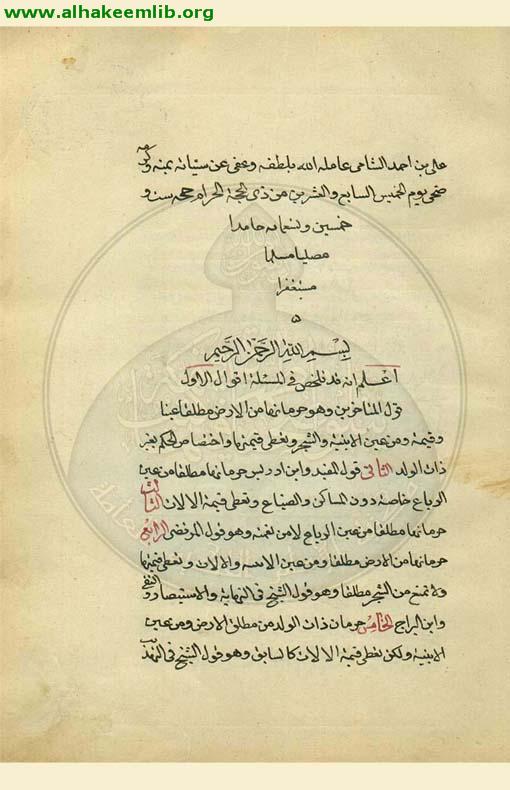 www.alhakeemlib.org
على بن احمد الشامى عامله الله بلطفه وعفى عن سيئاته بمنه وكرمه
ضحى يوم الخميس السابع والعشرين من ذى الحجة الحرام حجه ست و
خمسين وتسعمائه حامدا
مصليا مسلما
مستغفرا
بسم الله الرحمن الرحيم
اعلم انه قد تلخص فى المسئلة اقوال الاول
قول المتاخرين وهو حرمانها من الارض مطلقا عينا
وقيمة ومن عين الابنية والشجر وتعطى قيمتها واختصاص الحكم بغير
ذات الولد الثانى قول المفيد وابن ادريس حرمانها مطلقا من عين
الرباع خاصة دون المساكن والضياع وتعطى قيمة الالات الثالث
حرمانها مطلقا من عين الرباع لا من قيمته وهو قول المرتضى الرابع
حرمانها من الارض مطلقا ومن عين الابنيه والالات وتعطى قيمتها
ولا تمنع من الشجر مطلقا وهو قول الشيخ فى النهاية والاستبصار والتقى
وابن البراج الخامس حرمان ذات الولد من مطلق الارض ومن عين
الابنية ولكن تعطى قيمة الالات كالسابق وهو قول الشيخ فى التهذيب